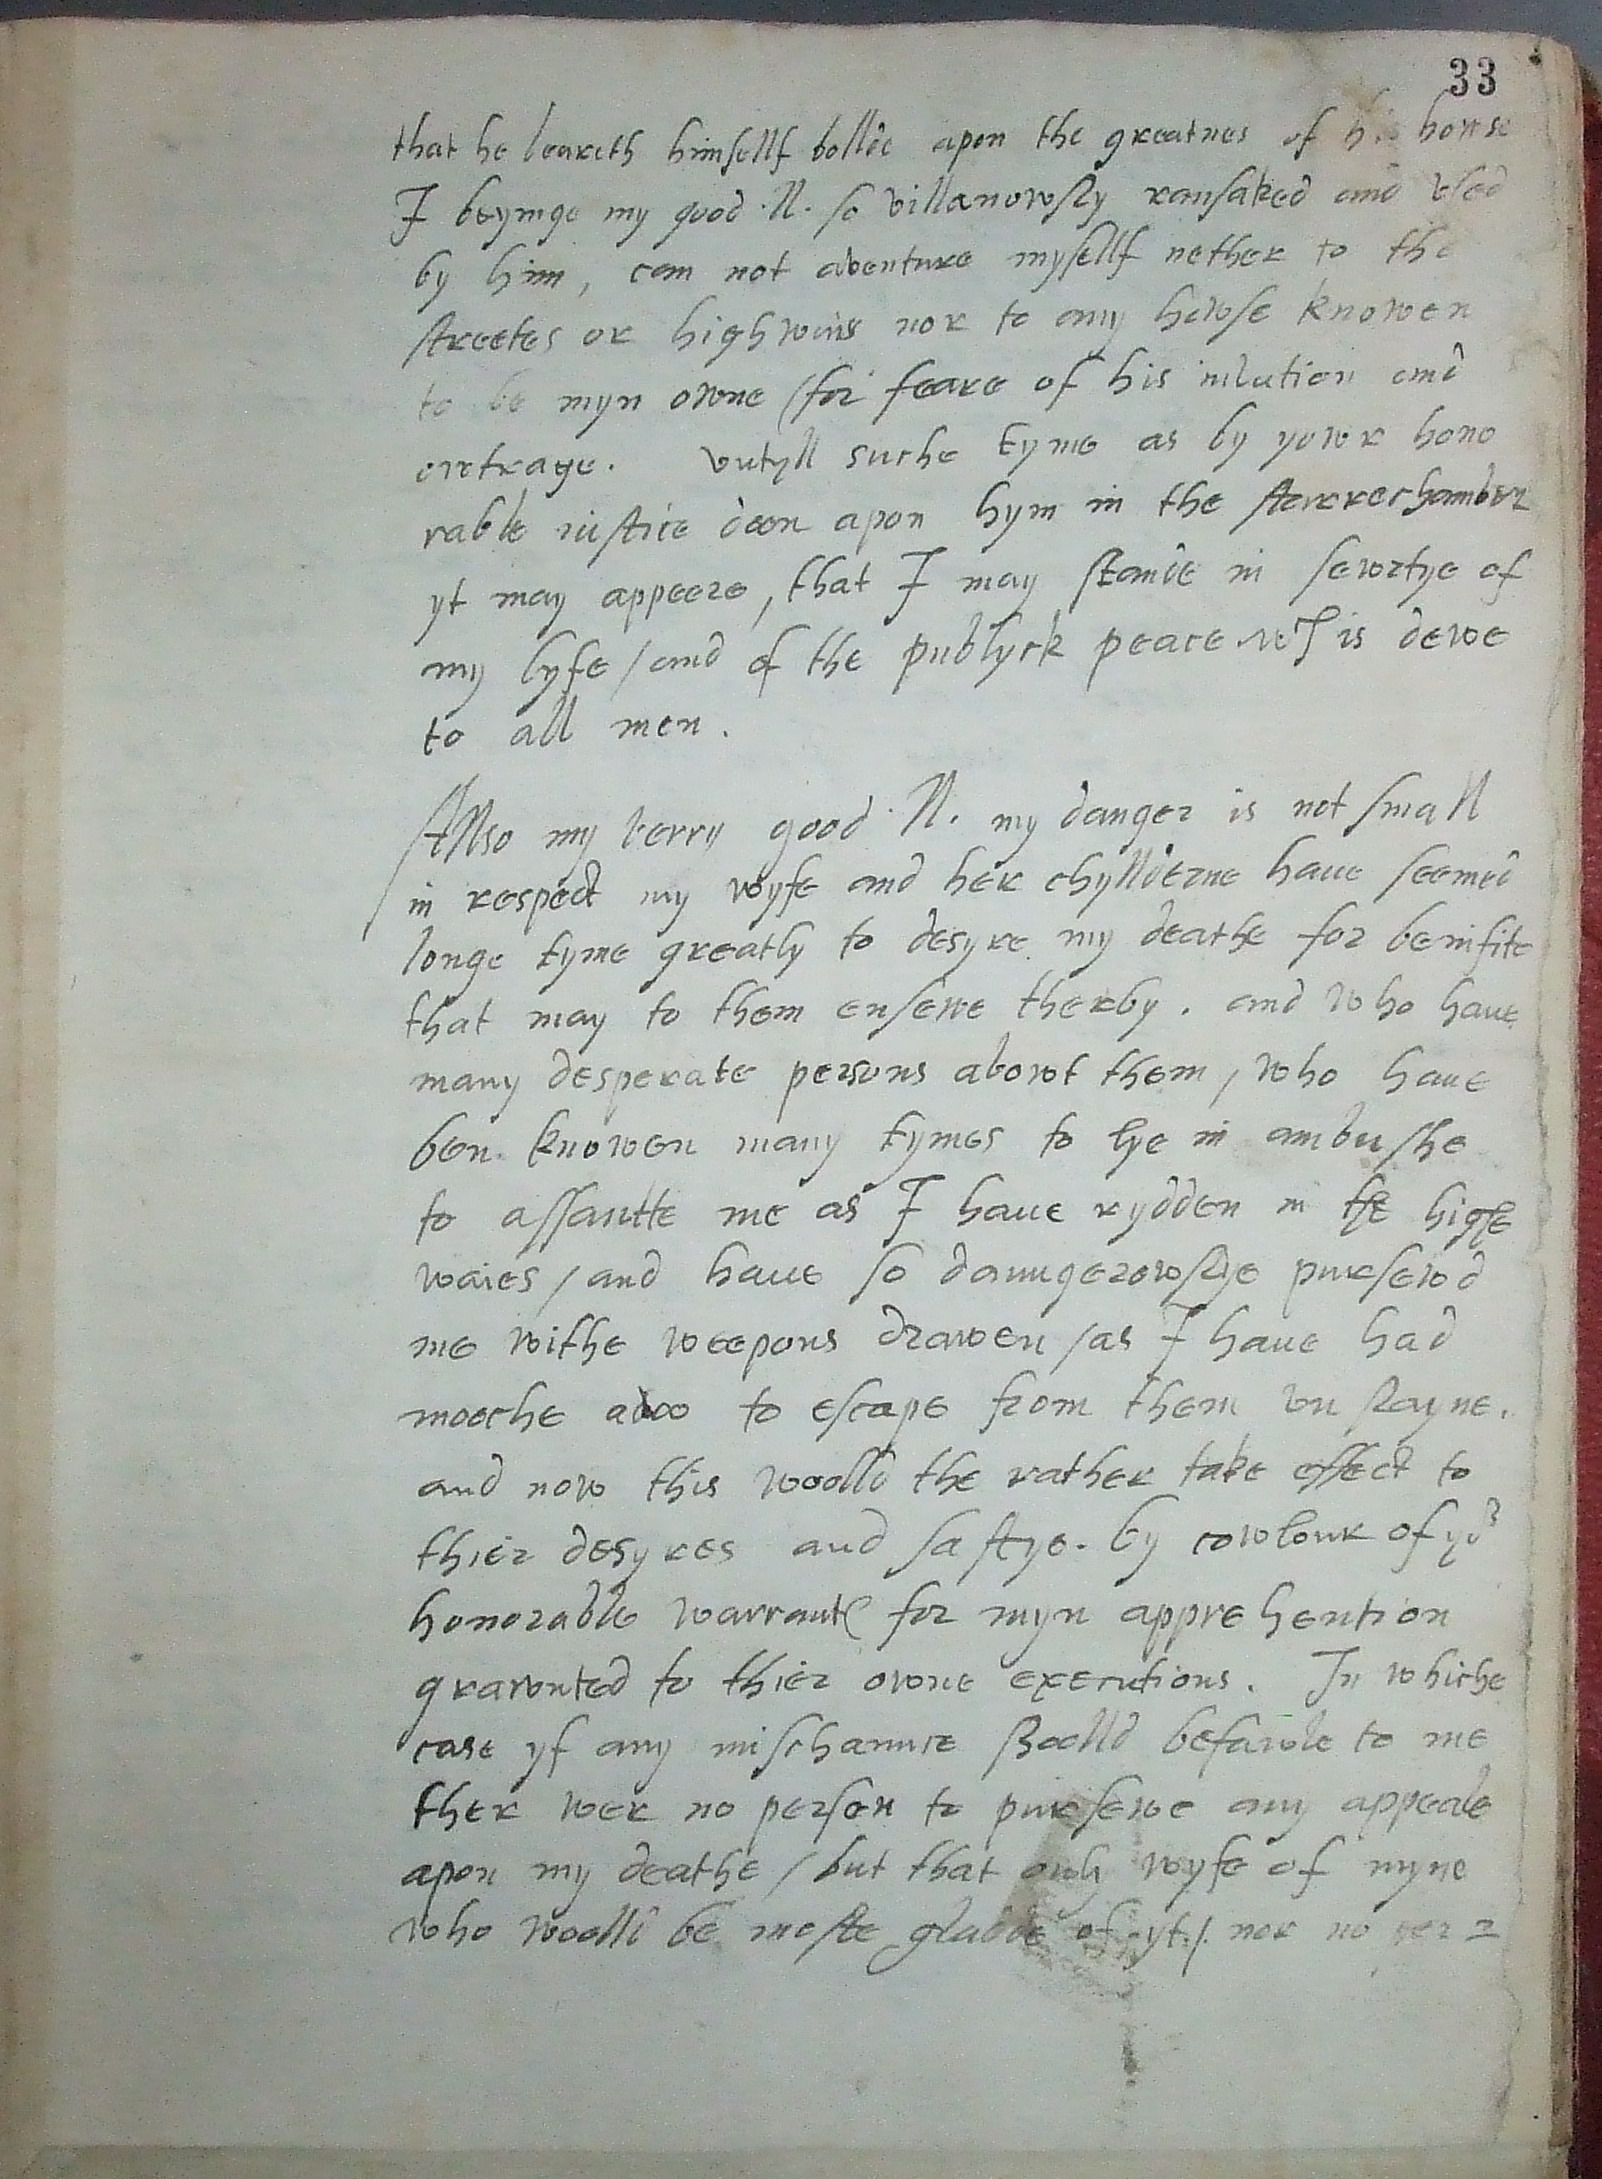 33
that he beareth himsellf bollde apon the greatnes of his howse
I beynge my good .ll. so villanowsly ransaked and vsed
by him, can not aventure mysellf nether to the
streetes or highwais nor to any howse knowen
to be myn owne / for feare of his invation and
owtrage. vntyll suche tyme as by yowr hono
rable iustice doon apon hym in the starrechamber
yt may appeere, that I may stande in sewrtye of
my lyfe / and of the publyck peace wch is dewe
to all men.
Allso my verry good .ll. my danger is not small
in respect my wyfe and her chyllderne haue seemed
longe tyme greatly to desyre my deathe for benifite
that may to them ensewe therby. and who haue
many desperate persons abowt them, who haue
ben knowen many tymes to lye in ambushe
to assautte me as I haue rydden in the highe
waies / and haue so daungerowslye pursewd
me withe weepons drawen / as I haue had
mooche adoo to escape from them vnslayne.
and now this woolld the rather take effect to
thier desyres and saftye. by cowlour of yor
honorable warrant for myn apprehention
grawnted to thier owne executions. In whiche
case yf any mischaunce shoolld befawle to me
ther wer no person to pursewe any appeale
apon my deathe / but that only wyfe of myne
who woolld be moste gladde of yt./. nor no